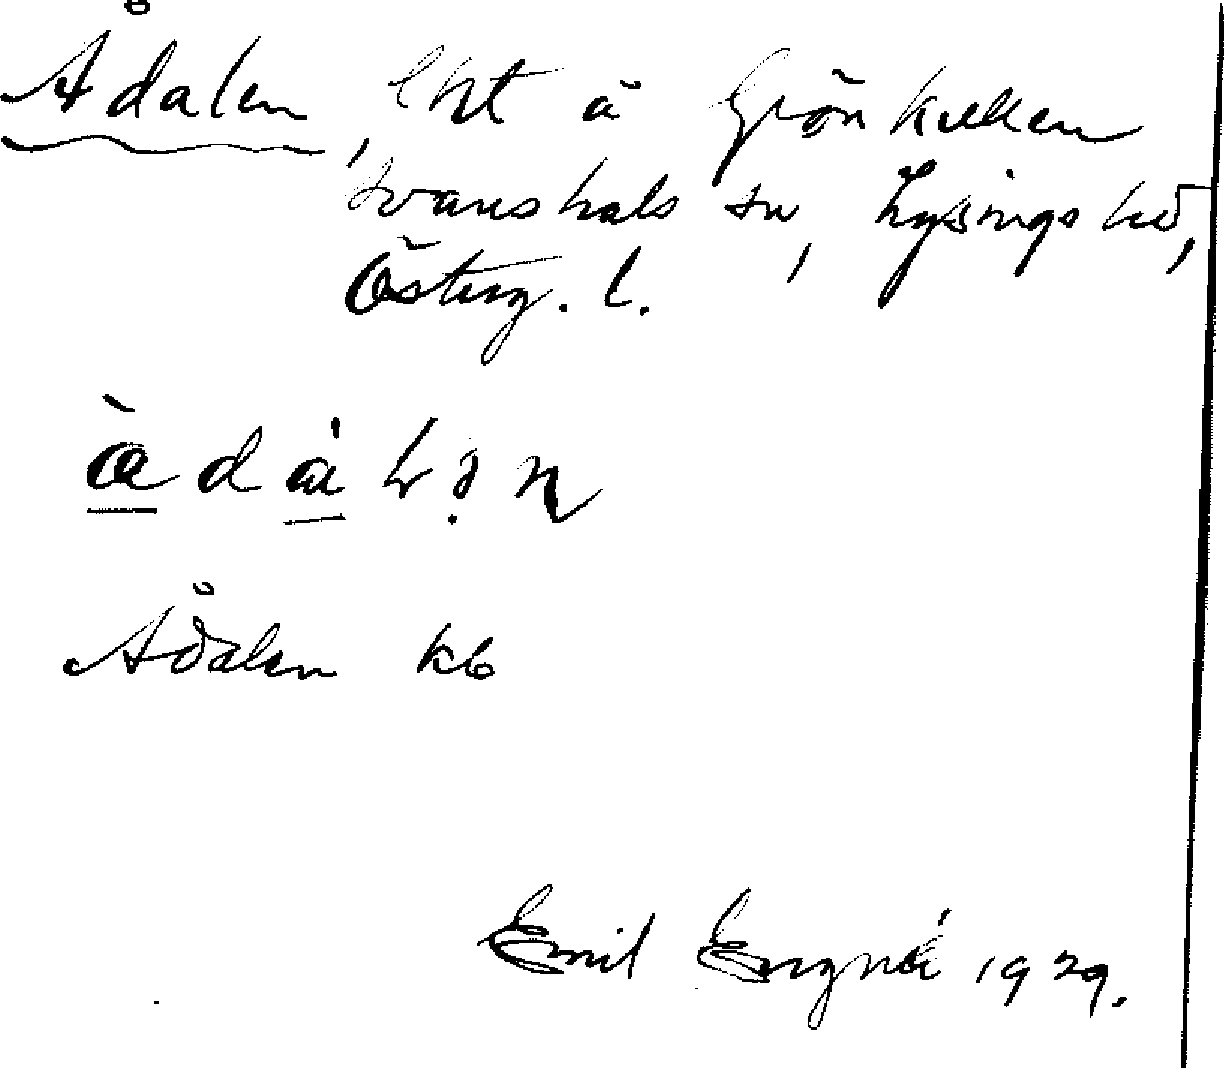 Ådalen, lht å Grönkullen
Svanshals sn, Lysings hd,
Österg. l.
Ådalen kb
Emil Engné 1929.